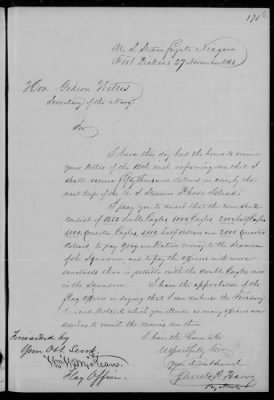 176
U. S. Steam frigate Niagara
Fort Pickens 27 November 1861
Hon. Gideon Welles
Secretary of the Navy
Sir
I have this day had the honor to receive
your letter of the 12th inst. informing me that I
shall receive fifty thousand dollars in coin by the
next trip of the U. S. Steamer Rhode Island.
I pray you to direct that the coin shall
consist of 1250 Double Eagles 1000 Eagles 2000 half Eagles
Quarter Eagles, half dollars and 2000 Quarter
dollars to pay Grog and Rations money to the Seamen
of the Squadron, and to pay the officers and men
smaller than is possible with the double Eagles now
in the Squadron. I have the approbation of the
Flag Officer in saying that I can disburse the Treasury
Notes to which you allude as many officers are
desirous to remit the monies in this form
I have the honor to be
Forwarded by Respectfully Sir
Your Obt. Servt. Your Obedient Servant
Wm W. McKean
Flag Officer. Paymaster